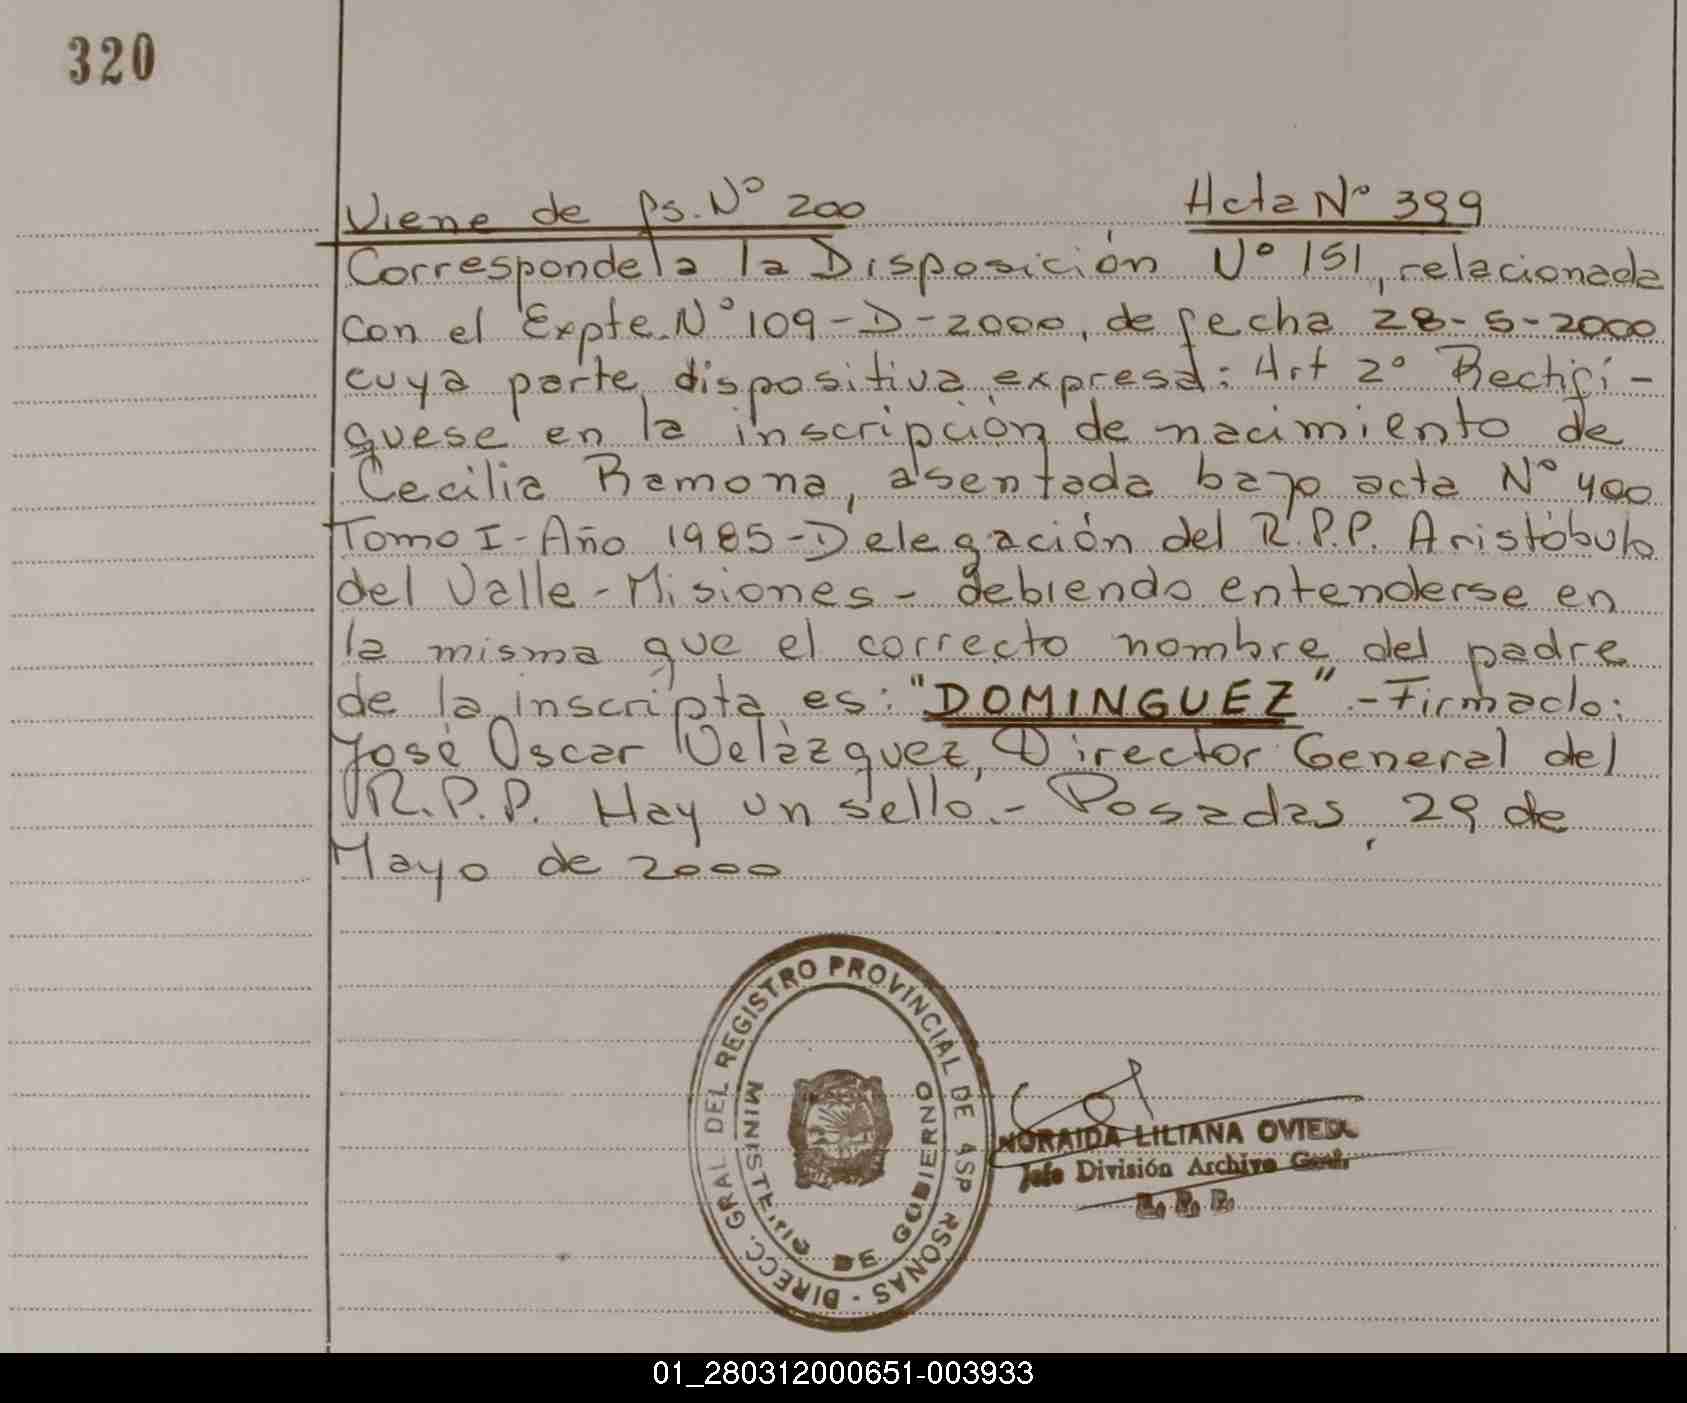 320
Viene de fs. Nº 200 Acta Nº 399
Corresponde a la Disposición Nº 151, relacionada
con el Expte. Nº 109-D-2000, de fecha 28-5-2000
cuya parte dispositiva expresa: Art 2º Rectifí-
quese en la inscripción de nacimiento de
Cecilia Ramona, asentada bajo acta Nº 400
Tomo I-Año 1985-Delegación del R.P.P. Aristóbulo
del Valle-Misiones- debiendo entenderse en
la misma que el correcto nombre del padre
de la inscripta es: "DOMINGUEZ".-Firmado:
José Oscar Velázquez, Director General del
R.P.P. Hay un sello.- Posadas, 29 de
Mayo de 2000
DIRECC. GRAL DEL REGISTRO PROVINCIAL DE
MINISTERIO DE GOBIERNO
NORAIDA LILIANA OVIEDO
Jefe División Archivo Gral.
R. P. P.
01_280312000651-003933